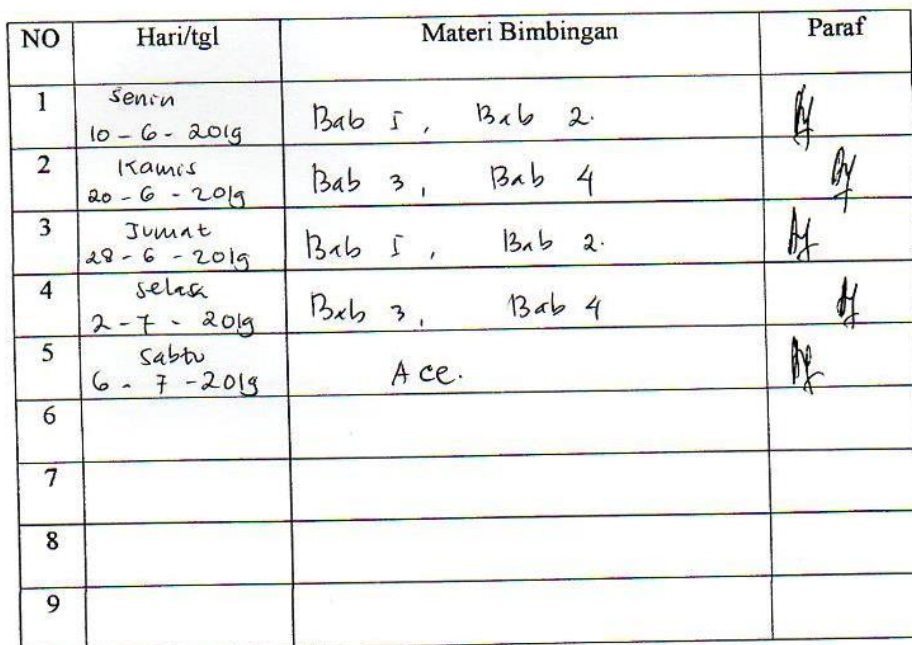 NO Hari/tgl Materi Bimbingan Paraf
1 Senin
10 - 6 - 2019 Bab I, Bab 2.
2 Kamis
20 - 6 - 2019 Bab 3, Bab 4
3 Jumat
28 - 6 - 2019 Bab I, Bab 2.
4 Selasa
2 - 7 - 2019 Bab 3, Bab 4
5 Sabtu
6 - 7 - 2019 Acc.
6
7
8
9